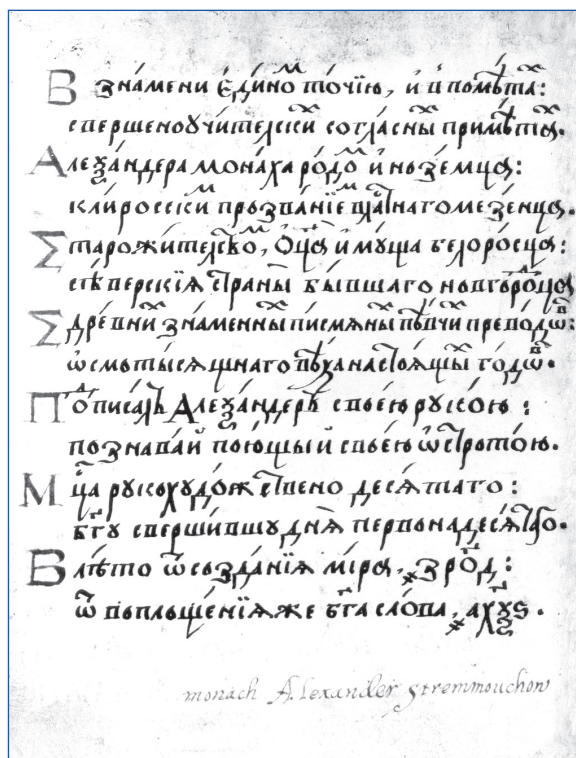 В знáмени є҆ди́нⷨо то́чїю, и҆ в помѣ́тⷯа:
свершеноꙋчи́телсски согла́сныⷯ примѣ́таⷯ.
Алеѯа́ндера мона́ха ро́доⷨ и҆ноѕе́мца:
кли́росскиⷨ прозва́нїеⷨ
Старожи́телсвоⷨ, ѻ҆ц҃а и҆мꙋ́ща бѣлоро́сца:
сѣ́верскїѧ страны̀ бы́вшаго новгоро́дца
Σ дре́вниⷯ зна́менныⷯ пи́смѧныⷯ пѣвчиⷯ превѡ́дѡⷡ:
ѡ҆смоты́сѧщнаго вѣ́ка настоѧ́щыⷯ годѡ́ⷡ.
Поⷣписа́лъ Алеѯа́ндеръ свое́ю рꙋкѡ́ю :
познава́й пою́щый свое́ю ѻ҆стрѡто́ю.
Мцⷭ҇а рꙋкохꙋдо́жⷭ҇твено десѧ́таго :
бг҃ꙋ сверши́вшꙋ днѧ̀ первонадесѧ́таго.
В лѣ́то ѿ созда́нїѧ мі́ра, ҂зро́д :
ѿ воплоще́нїѧ же бг҃а сло́ва, ҂ахѯѕ .
monach Alexander Stremmouchow